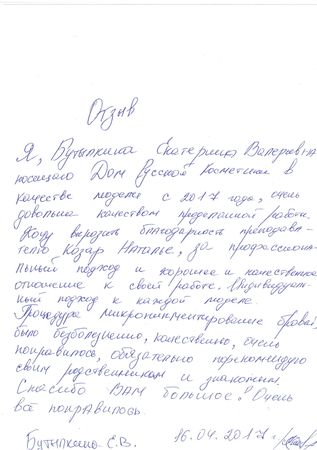 Отзыв
Я, Бутылкина Екатерина Валерьевна
посещаю Дом Русской Косметики в
качестве модели с 2017 года, очень
довольна качеством проделанной работы.
Хочу выразить благодарность преподава-
телю Козар Наталье, за профессиона-
льный подход и хорошее и качественное
отношение к своей работе. Индивидуаль-
ный подход к каждой модели.
Процедура микропигментирование бровей
было безболезненно, качественно, очень
понравилось, обязательно порекомендую
своим родственникам и знакомым.
Спасибо ВАМ большое! Очень
всё понравилось.
Бутылкина Е.В. 16.04.2017г